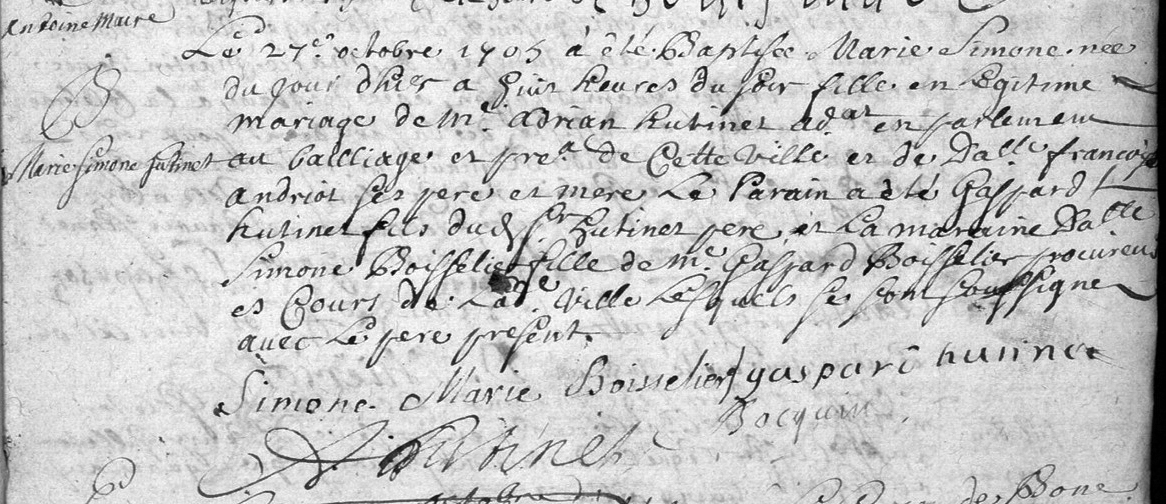 Antoine Maire
Le 27e octobre 1705 à été Baptisée Marie Simone née
du jour d'hier a huit heures du soir fille en legitime
mariage de Me. adrian hutinet adat en parlement
Marie Simone hutinet
au bailliage et prea. de Cette ville et de Dalle francoise
andriot ses pere et mere Le Parain a èté Gaspard
hutinet fils dud Sr hutinet pere, et La maraine Dalle
Simone Boisselier fille de me. Gaspard Boisselier procureur
es Cours de Lade ville Lesquels se sont soussigne
avec Le pere present.
Simone Marie Boisselier gaspard hutinet
Bocquin
hutinet
octobre